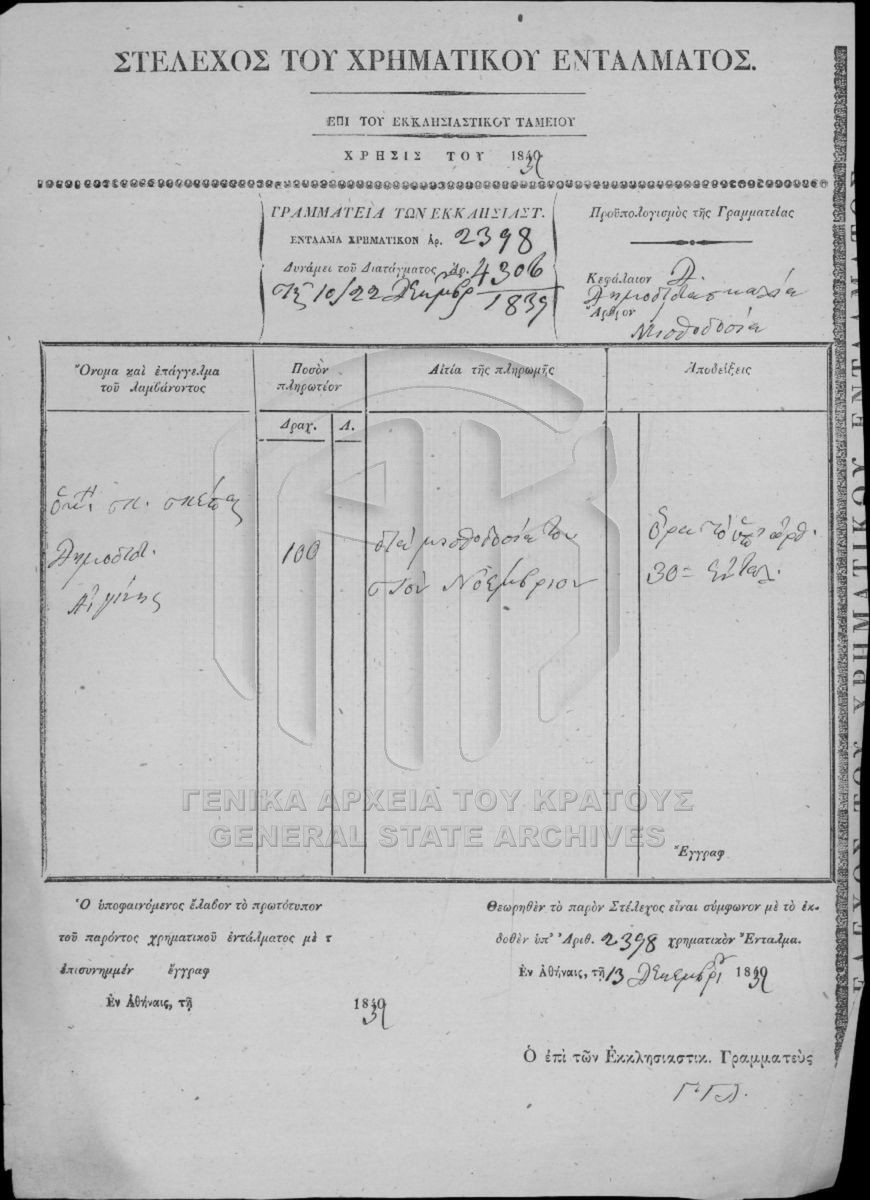 ΣΤΕΛΕΧΟΣ ΤΟΥ ΧΡΗΜΑΤΙΚΟΥ ΕΝΤΑΛΜΑΤΟΣ.
ΕΠΙ ΤΟΥ ΕΚΚΛΗΣΙΑΣΤΙΚΟΥ ΤΑΜΕΙΟΥ
ΧΡΗΣΙΣ ΤΟΥ 1839
ΓΡΑΜΜΑΤΕΙΑ ΤΩΝ ΕΚΚΛΗΣΙΑΣΤ.
ΕΝΤΑΛΜΑ ΧΡΗΜΑΤΙΚΟΝ Ἀρ. 2398
Δυνάμει τοῦ Διατάγματος Ἀρ. 4306
τῆς 10/22 Δεκεμβρ 1839
Προϋπολογισμὸς τῆς Γραμματείας
Κεφάλαιον Δ.
Δημοδιδασκαλεία
Ἄρθρον
Μισθοδοσία
Ὄνομα καὶ ἐπάγγελμα τοῦ λαμβάνοντος
Ποσὸν πληρωτέον
Αἰτία τῆς πληρωμῆς
Ἀποδείξεις
Δραχ. Λ.
Δημοδιδ.
Αἰγίνης
100
διὰ μισθοδοσίαν του
τὸν Νοέμβριον
ὅρα τὸ ὑπ' ἀριθ.
30 ενταλ.
Ἔγγραφ
ΓΕΝΙΚΑ ΑΡΧΕΙΑ ΤΟΥ ΚΡΑΤΟΥΣ
GENERAL STATE ARCHIVES
Ὁ ὑποφαινόμενος ἔλαβον τὸ πρωτότυπον
τοῦ παρόντος χρηματικοῦ ἐντάλματος μὲ τ
ἐπισυνημμέν ἔγγραφ
Ἐν Ἀθήναις, τῇ 1839
Θεωρηθὲν τὸ παρὸν Στέλεχος εἶναι σύμφωνον μὲ τὸ ἐκ-
δοθὲν ὑπ' Ἀριθ. 2398 χρηματικὸν Ἔνταλμα.
Ἐν Ἀθήναις, τῇ 13 Δεκεμβρίου 1839
Ὁ ἐπὶ τῶν Ἐκκλησιαστικ. Γραμματεὺς